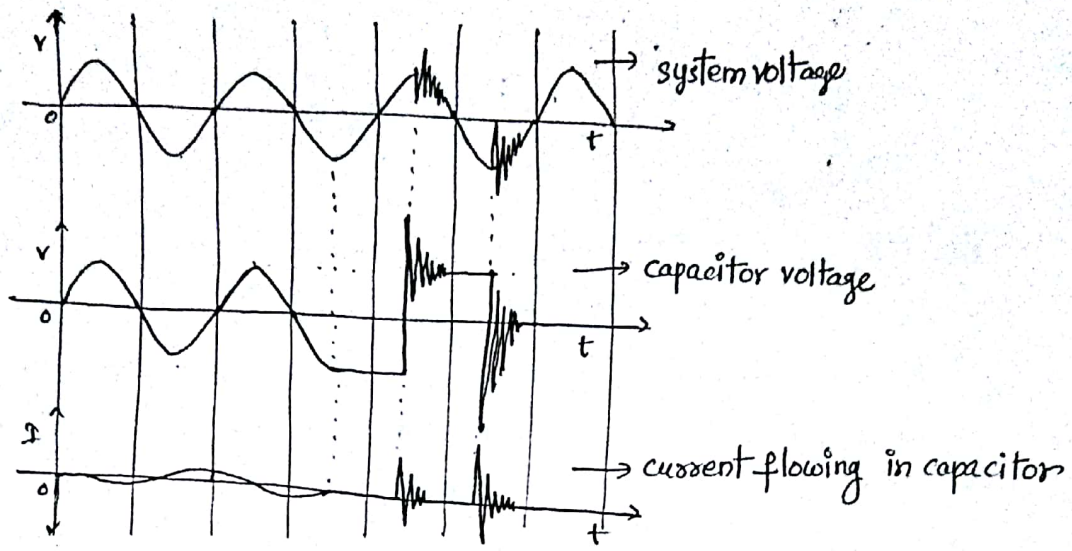 V
system voltage
0
t
V
capacitor voltage
0
t
I
current flowing in capacitor
0
t